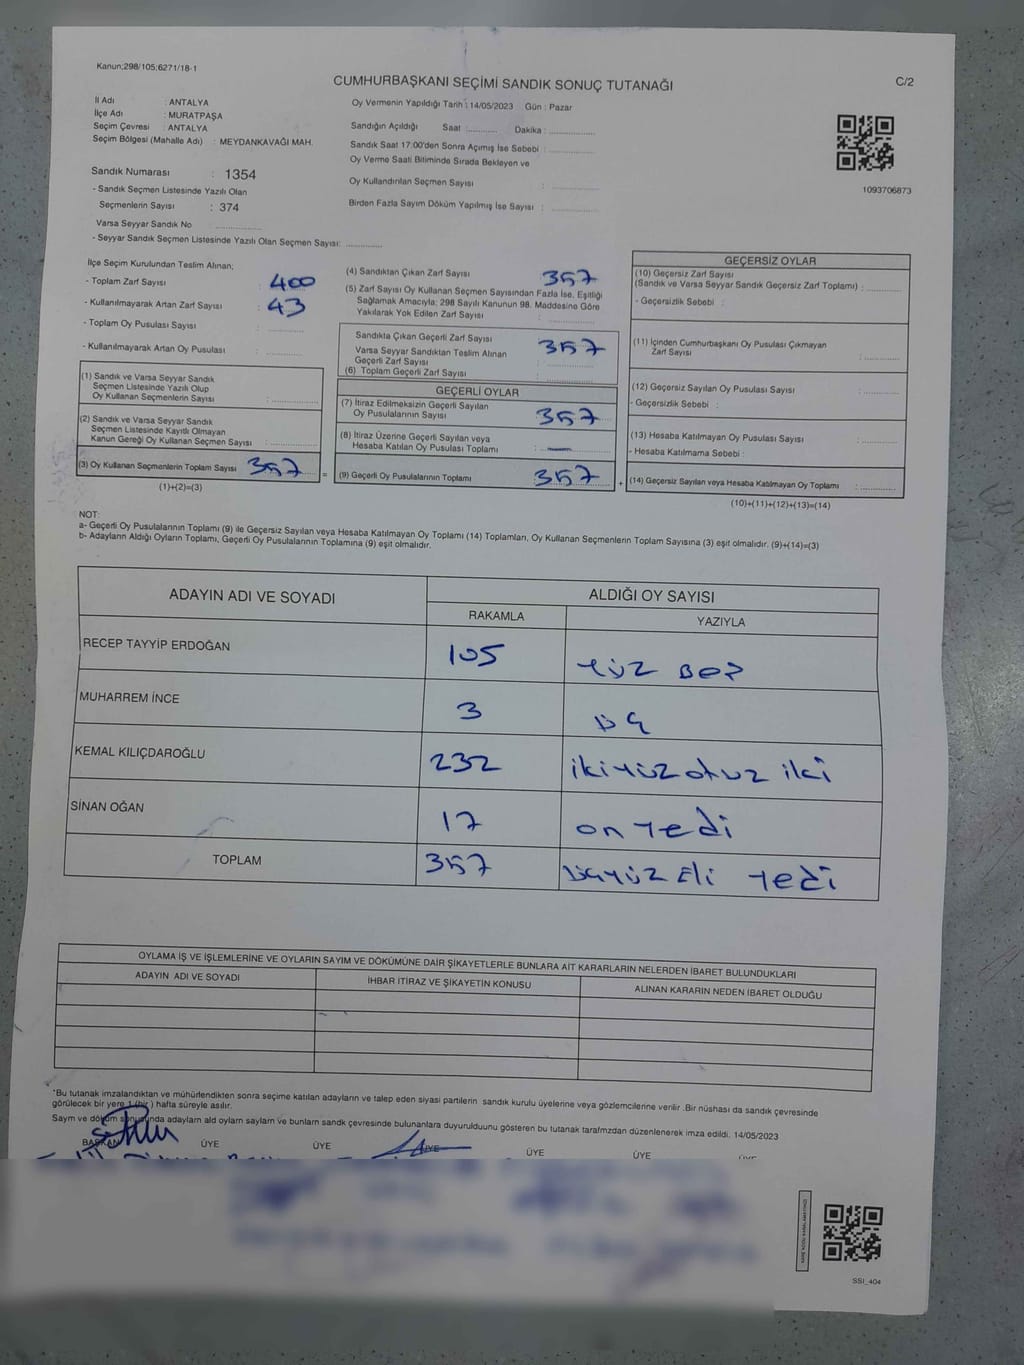 Kanun;298/105;6271/18-1
CUMHURBAŞKANI SEÇİMİ SANDIK SONUÇ TUTANAĞI
C/2
İl Adı : ANTALYA
İlçe Adı : MURATPAŞA
Seçim Çevresi : ANTALYA
Seçim Bölgesi (Mahalle Adı) : MEYDANKAVAĞI MAH.
Oy Vermenin Yapıldığı Tarih : 14/05/2023 Gün : Pazar
Sandığın Açıldığı Saat :.......... Dakika : ..............
Sandık Saat 17.00'den Sonra Açımış İse Sebebi : ..............
Oy Verme Saati Bitiminde Sırada Bekleyen ve
Oy Kullandırılan Seçmen Sayısı : ..............
Birden Fazla Sayım Döküm Yapılmış İse Sayısı : ..............
1093706873
Sandık Numarası : 1354
- Sandık Seçmen Listesinde Yazılı Olan
Seçmenlerin Sayısı : 374
Varsa Seyyar Sandık No ..............
- Seyyar Sandık Seçmen Listesinde Yazılı Olan Seçmen Sayısı: ...........
İlçe Seçim Kurulundan Teslim Alınan;
- Toplam Zarf Sayısı : 400
- Kullanılmayarak Artan Zarf Sayısı : 43
- Toplam Oy Pusulası Sayısı :
- Kullanılmayarak Artan Oy Pusulası : ..........
(1) Sandık ve Varsa Seyyar Sandık
Seçmen Listesinde Yazılı Olup
Oy Kullanan Seçmenlerin Sayısı : ..............
(2) Sandık ve Varsa Seyyar Sandık
Seçmen Listesinde Kayıtlı Olmayan
Kanun Gereği Oy Kullanan Seçmen Sayısı : ..............
(3) Oy Kullanan Seçmenlerin Toplam Sayısı 357 =
(1)+(2)=(3)
(4) Sandıktan Çıkan Zarf Sayısı 357
(5) Zarf Sayısı Oy Kullanan Seçmen Sayısından Fazla İse, Eşitliği
Sağlamak Amacıyla; 298 Sayılı Kanunun 98. Maddesine Göre
Yakılarak Yok Edilen Zarf Sayısı : ..............
Sandıkta Çıkan Geçerli Zarf Sayısı 357
Varsa Seyyar Sandıktan Teslim Alınan
Geçerli Zarf Sayısı : ..............
(6) Toplam Geçerli Zarf Sayısı : ..............
GEÇERLİ OYLAR
(7) İtiraz Edilmeksizin Geçerli Sayılan
Oy Pusulalarının Sayısı 357
(8) İtiraz Üzerine Geçerli Sayılan veya
Hesaba Katılan Oy Pusulası Toplamı : —
(9) Geçerli Oy Pusulalarının Toplamı 357 +
GEÇERSİZ OYLAR
(10) Geçersiz Zarf Sayısı
(Sandık ve Varsa Seyyar Sandık Geçersiz Zarf Toplamı) : ..........
- Geçersizlik Sebebi :
(11) İçinden Cumhurbaşkanı Oy Pusulası Çıkmayan
Zarf Sayısı : ..........
(12) Geçersiz Sayılan Oy Pusulası Sayısı : ..........
- Geçersizlik Sebebi :
(13) Hesaba Katılmayan Oy Pusulası Sayısı : ..........
- Hesaba Katılmama Sebebi :
(14) Geçersiz Sayılan veya Hesaba Katılmayan Oy Toplamı : ..........
(10)+(11)+(12)+(13)=(14)
NOT:
a- Geçerli Oy Pusulalarının Toplamı (9) ile Geçersiz Sayılan veya Hesaba Katılmayan Oy Toplamı (14) Toplamları, Oy Kullanan Seçmenlerin Toplam Sayısına (3) eşit olmalıdır. (9)+(14)=(3)
b- Adayların Aldığı Oyların Toplamı, Geçerli Oy Pusulalarının Toplamına (9) eşit olmalıdır.
ADAYIN ADI VE SOYADI ALDIĞI OY SAYISI
RAKAMLA YAZIYLA
RECEP TAYYİP ERDOĞAN 105 yüz beş
MUHARREM İNCE 3 üç
KEMAL KILIÇDAROĞLU 232 ikiyüz otuz iki
SİNAN OĞAN 17 on yedi
TOPLAM 357 üçyüz Eli yedi
OYLAMA İŞ VE İŞLEMLERİNE VE OYLARIN SAYIM VE DÖKÜMÜNE DAİR ŞİKAYETLERLE BUNLARA AİT KARARLARIN NELERDEN İBARET BULUNDUKLARI
ADAYIN ADI VE SOYADI İHBAR İTİRAZ VE ŞİKAYETİN KONUSU ALINAN KARARIN NEDEN İBARET OLDUĞU
*Bu tutanak imzalandıktan ve mühürlendikten sonra seçime katılan adayların ve talep eden siyasi partilerin sandık kurulu üyelerine veya gözlemcilerine verilir .Bir nüshası da sandık çevresinde
görülecek bir yere 1 (bir ) hafta süreyle asılır.
Sayım ve döküm sonusunda adayların ald oyların sayların ve bunların sandk çevresinde bulunanlara duyurulduunu gösteren bu tutanak tarafmzdan düzenlenerek imza edildi. 14/05/2023
BAŞKAN ÜYE ÜYE ÜYE ÜYE ÜYE
SSI_404